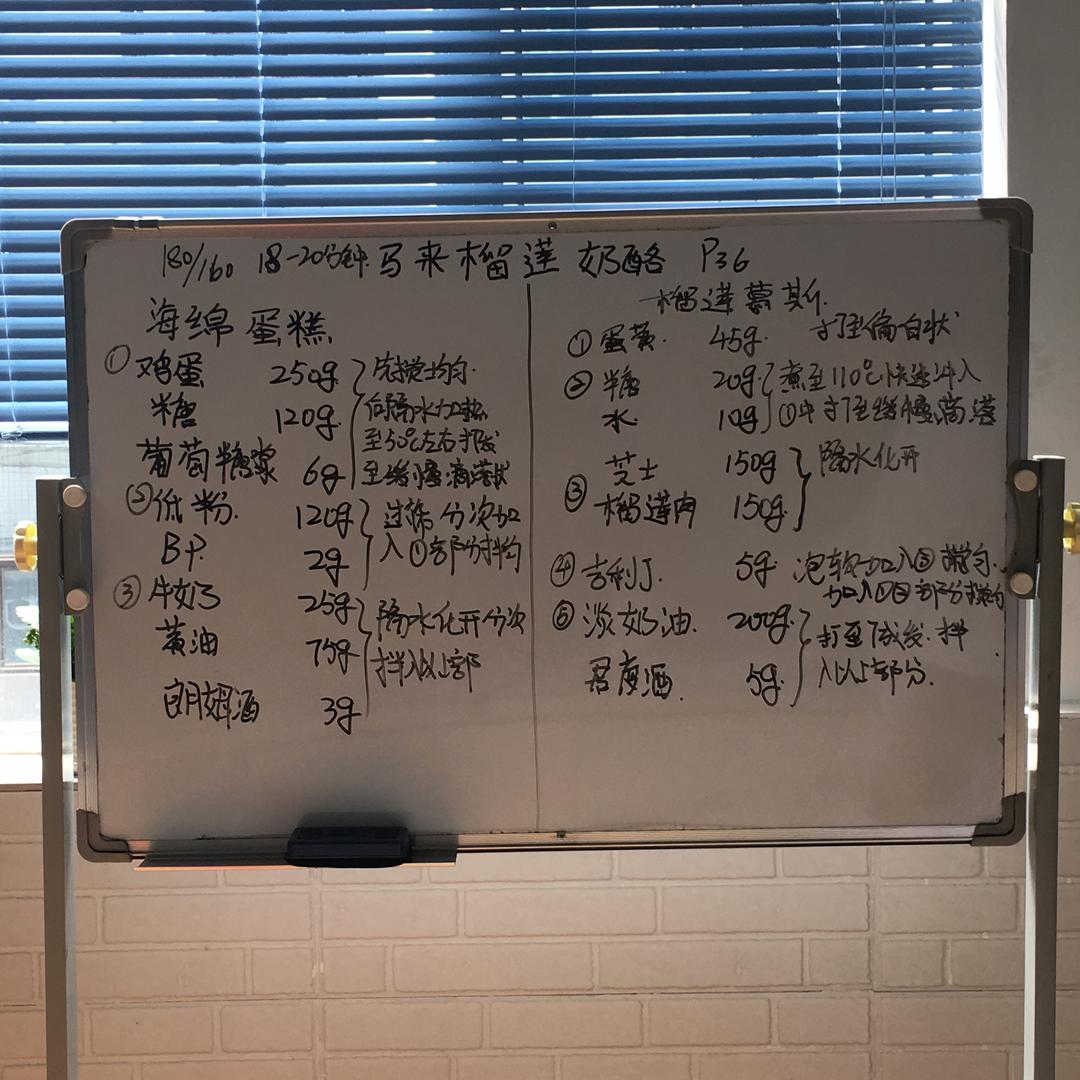 180/160 18-20分钟 马来榴蓮奶酪 P36
海绵蛋糕
① 鸡蛋 250g 先搅拌均匀
糖 120g 隔水加热
至50℃左右打发
葡萄糖浆 6g 至绪慢滴落状
② 低粉 120g 过筛分次加
B P 2g 入①部份拌均
③ 牛奶 25g 隔水化开分次
黄油 75g 拌入以上部
朗姆酒 3g
榴蓮慕斯
① 蛋黄 45g 打至偏白状
② 糖 20g 煮至110℃快速冲入
水 10g ①中打至绪慢滴落
芝士 150g 隔水化开
③ 榴蓮肉 150g
④ 吉利丁 5g 泡软加入③搅匀
加入①②部分搅均
⑤ 淡奶油 200g 打至7成发.拌
君度酒 5g 入以上部分.